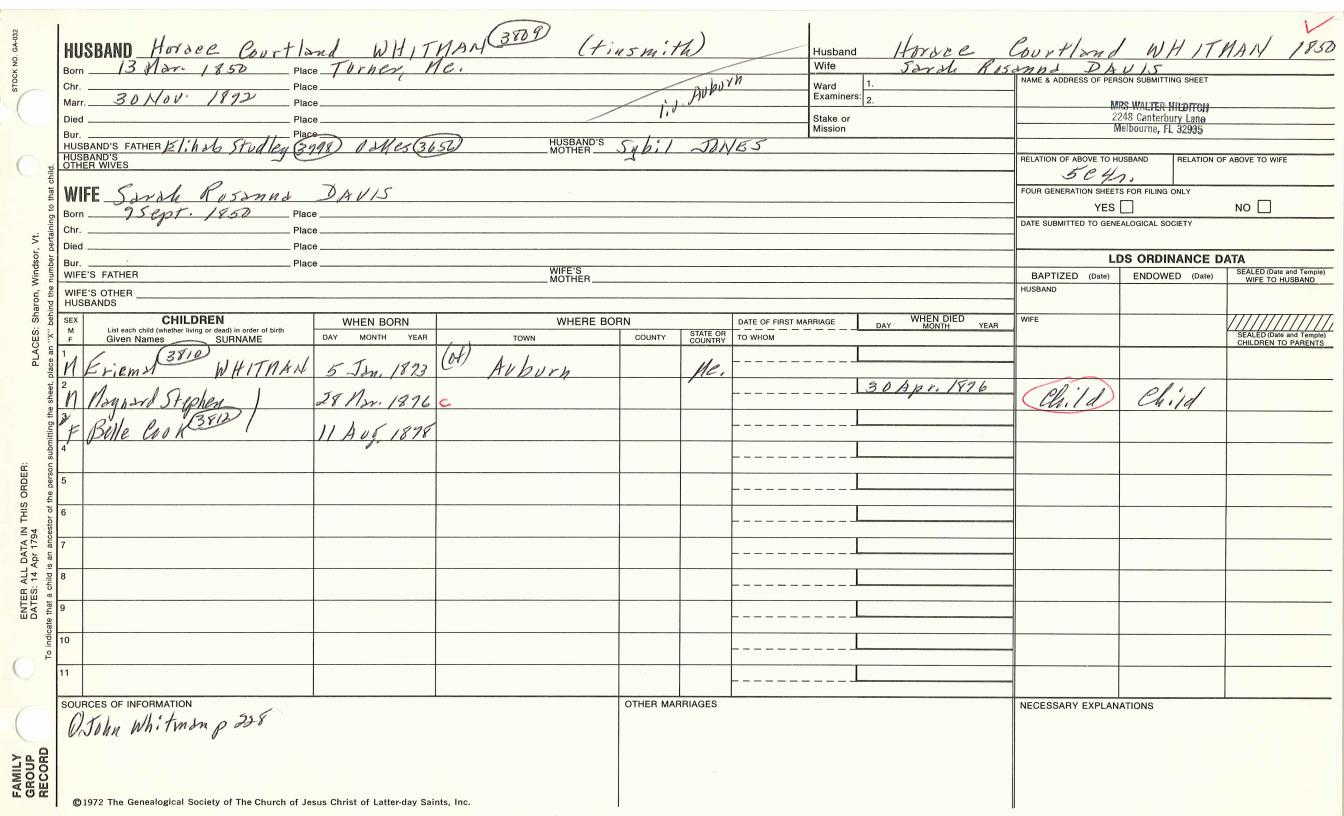 STOCK NO. GA-032
HUSBAND Horace Courtland WHITMAN 3809 (tinsmith)
Born 13 Mar. 1850 Place Turner, Me.
Chr. Place
Marr. 30 Nov. 1892 Place
Died Place
Bur. Place
liv. Auburn
HUSBAND'S FATHER Studley 3798 3656 HUSBAND'S MOTHER Sybil JONES
HUSBAND'S OTHER WIVES
WIFE Sarah Rosanna DAVIS
Born 9 Sept. 1850 Place
Chr. Place
Died Place
Bur. Place
WIFE'S FATHER WIFE'S MOTHER
WIFE'S OTHER HUSBANDS
Husband Horace Courtland WHITMAN 1850
Wife Sarah Rosanna DAVIS
Ward Examiners: 1.
2.
Stake or Mission
NAME & ADDRESS OF PERSON SUBMITTING SHEET
MRS WALTER HILDITCH
2248 Canterbury Lane
Melbourne, FL 32935
RELATION OF ABOVE TO HUSBAND RELATION OF ABOVE TO WIFE
5c4r.
FOUR GENERATION SHEETS FOR FILING ONLY
YES NO
DATE SUBMITTED TO GENEALOGICAL SOCIETY
LDS ORDINANCE DATA
BAPTIZED (Date) ENDOWED (Date) SEALED (Date and Temple) WIFE TO HUSBAND
HUSBAND
WIFE
SEALED (Date and Temple) CHILDREN TO PARENTS
SEX M F CHILDREN WHEN BORN WHERE BORN DATE OF FIRST MARRIAGE WHEN DIED
List each child (whether living or dead) in order of birth
Given Names SURNAME DAY MONTH YEAR TOWN COUNTY STATE OR COUNTRY TO WHOM DAY MONTH YEAR
1 M 3810 WHITMAN 5 Jan. 1873 Auburn Me.
2 M Maynard Stephen 28 Mar. 1876 c 30 Apr. 1876 Child Child
3 F Belle Cook 3812 11 Aug. 1878
4
5
6
7
8
9
10
11
SOURCES OF INFORMATION OTHER MARRIAGES NECESSARY EXPLANATIONS
John Whitman p 228
©1972 The Genealogical Society of The Church of Jesus Christ of Latter-day Saints, Inc.
FAMILY GROUP RECORD
ENTER ALL DATA IN THIS ORDER:
DATES: 14 Apr 1794 PLACES: Sharon, Windsor, Vt.
To indicate that a child is an ancestor of the person submitting the sheet, place an "X" behind the number pertaining to that child.